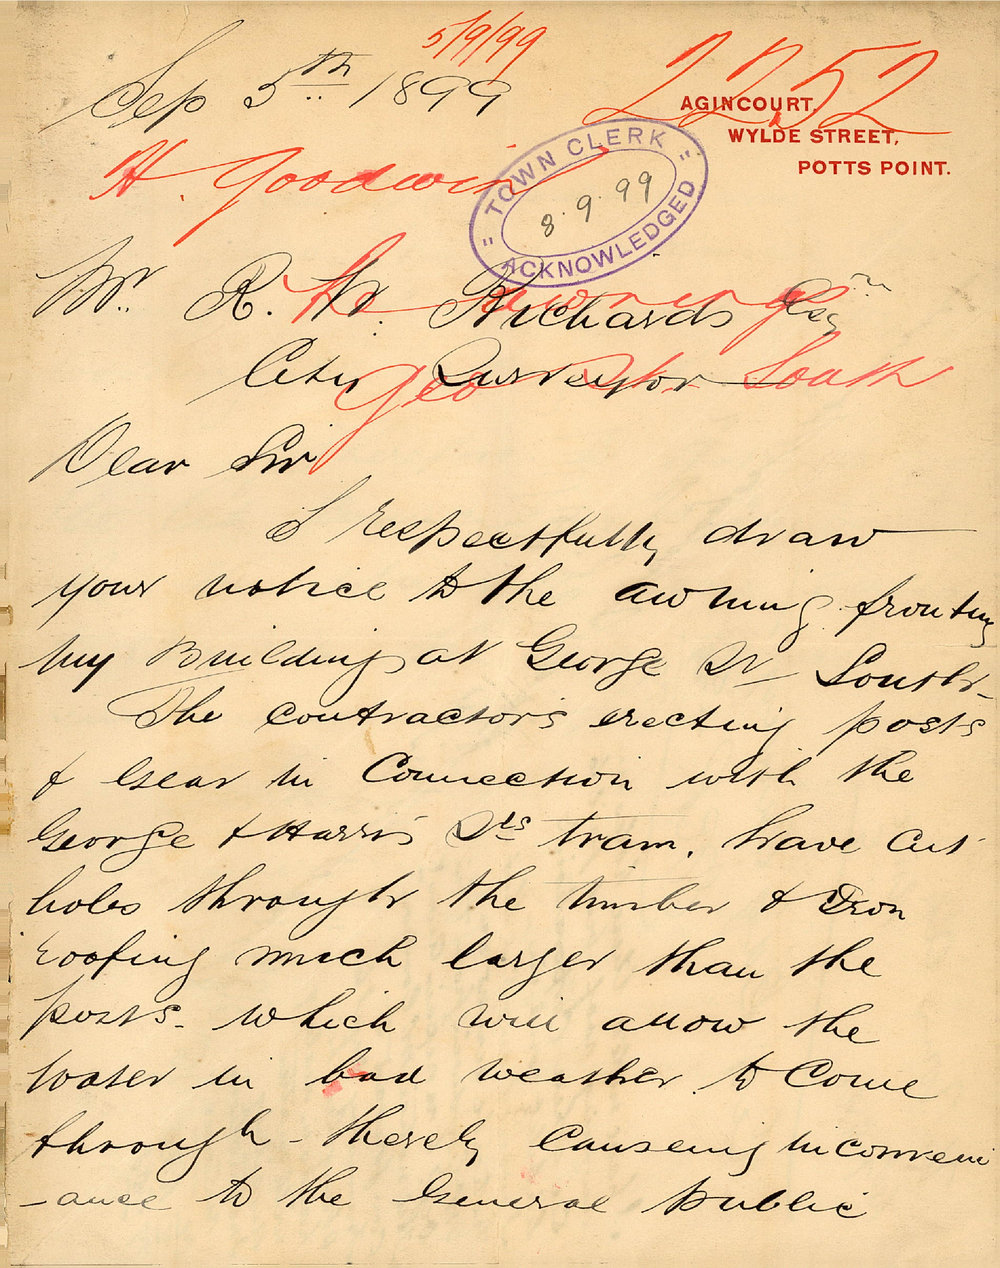 5/9/99
Sep 5th 1899
2252
AGINCOURT,
WYLDE STREET,
POTTS POINT.
H. Goodwin
"TOWN CLERK"
8.9.99
ACKNOWLEDGED
Mr. R. W. Richards Esqre
re awning
City Surveyor
Geo St. South
Dear Sir
I respectfully draw
your notice to the awning fronting
my Building at George St South-
The contractors erecting posts
& Gear in Connection with the
George & Harris Sts tram, have cut
holes through the timber & Iron
roofing much larger than the
posts- which will allow the
water in bad weather to Come
through - thereby Causeing inconveni
-ance to the General public